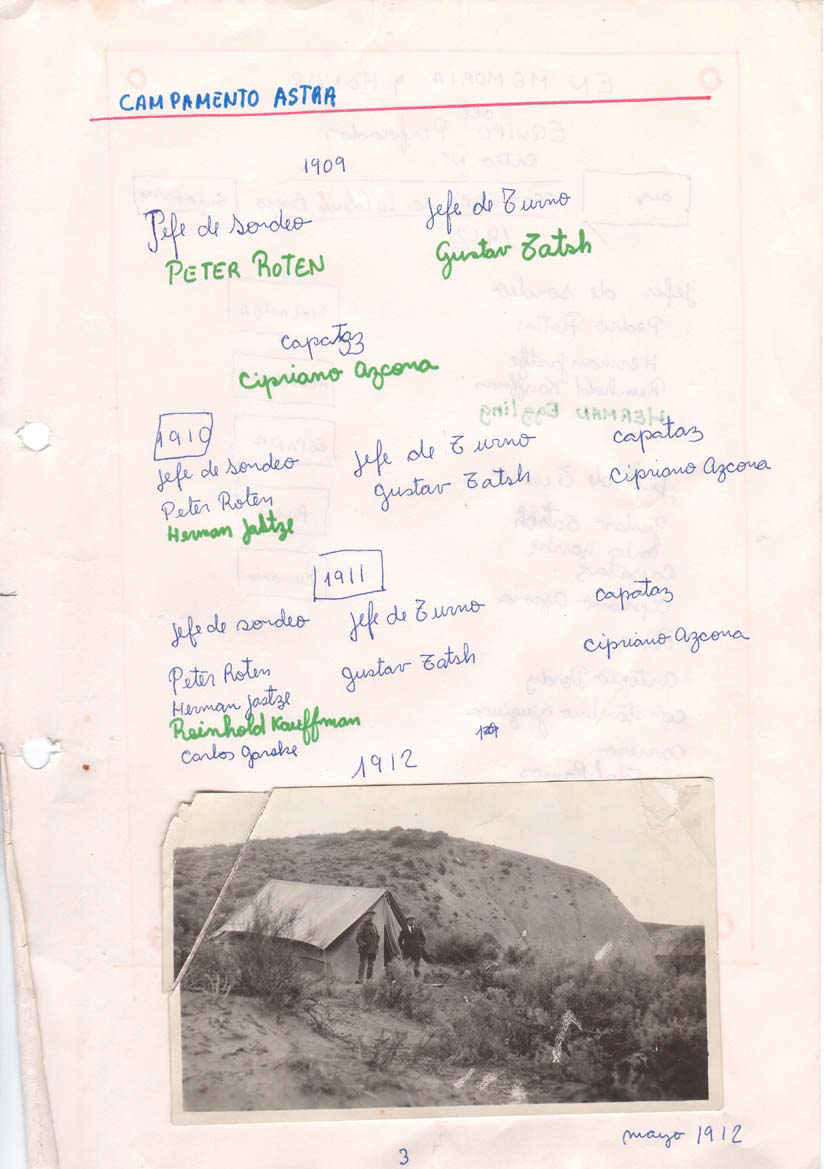 CAMPAMENTO ASTRA
1909
Jefe de sondeo
Jefe de Turno
PETER ROTEN
Gustav Tatsh
Capataz
Cipriano Azcona
1910
Jefe de sondeo
Jefe de Turno
capataz
Peter Roten
Gustav Tatsh
Cipriano Azcona
Herman Jastze
1911
Jefe de sondeo
Jefe de Turno
capataz
Peter Roten
Gustav Tatsh
Cipriano Azcona
Herman Jastze
Reinhold Kauffman
Carlos Garske
1912
mayo 1912
3